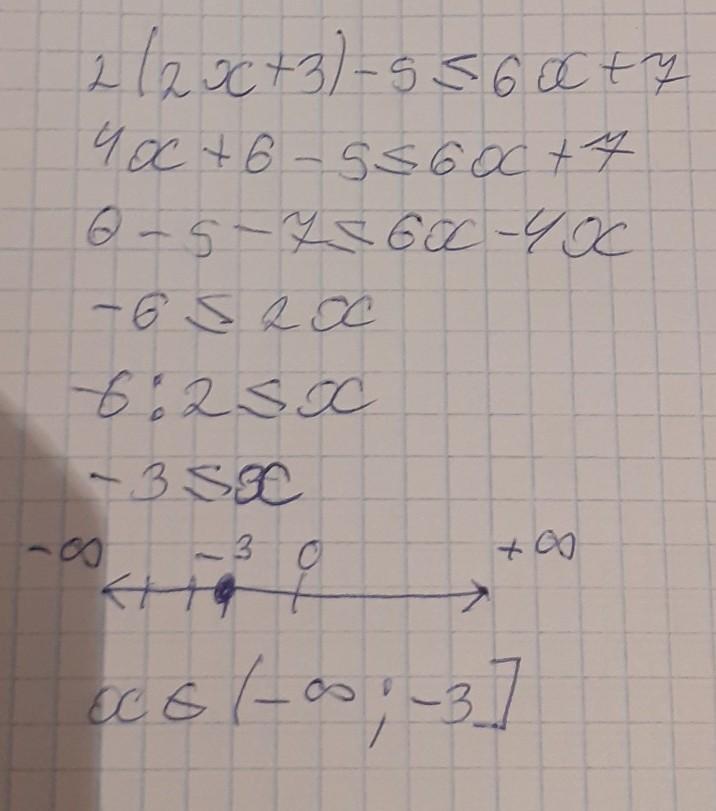 2(2x+3)-5≤6x+7
4x+6-5≤6x+7
6-5-7≤6x-4x
-6≤2x
-6:2≤x
-3≤x
-∞ -3 0 +∞
x∈(-∞;-3]